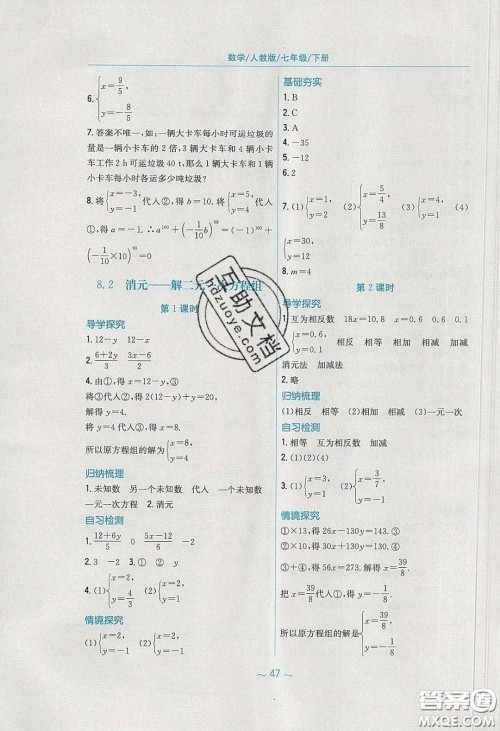 数学/人教版/七年级/下册
6. {x=9/5, y=-8/5
7. 答案不唯一,如:一辆大卡车每小时可运垃圾的
量是一辆小卡车的 2 倍,3 辆大卡车和 4 辆小卡
车工作 2 h 可运垃圾 40 t,那么 1 辆大卡车和 1 辆
小卡车每小时各运多少吨垃圾?
8. 将{x=-3, y=-1 代入②得 b=10. 将{x=5, y=4 代入
①得 a=-1. ∴a¹⁰⁰+(-1/10 b)⁹⁹=(-1)¹⁰⁰+
(-1/10×10)⁹⁹=0
8.2 消元——解二元一次方程组
第 1 课时
导学探究
1. 12-y 12-x
2. (6+2y)/3 (3x-6)/2
4. 由①,得 x=12-y,③
将③代入②,得 2(12-y)+y=20.
解得 y=4.
将 y=4 代入③,得 x=8.
所以原方程组的解为{x=8, y=4
归纳梳理
1. 未知数 另一个未知数 代入 一个未知数
一元一次方程 2. 消元
自习检测
1. (12+6y)/5 (5x-12)/6
2. ② ① ② ①
4. (1){x=2, y=4/3 (2){x=2, y=-1
情境探究
(1){x=2, y=-1 (2){x=2, y=-1
基础夯实
1. B
2. C
3. A
4. -35
5. -12
6. 2
7. (1){x=1, y=2 (2){x=5/4, y=13/8 (3){x=3, y=-1 (4)
{x=30, y=-12
8. m=4
第 2 课时
导学探究
1. 互为相反数 18x=10.8 x=0.6 -0.1
{x=0.6, y=0.1 相反 相等 相加 相减 加减
消元法 加减法
2. 略
归纳梳理
(1)相反 相等 (2)相加 相减 (3)一元一次
自习检测
1. 相等 互为相反数 加减
2. (1)(2)(4)
3. (1){x=6, y=-1 (2){x=3/7, y=-1/7
情境探究
①×13,得 26x-130y=143. ③
②×10,得 30x+130y=130. ④
③+④,得 56x=273. 解得 x=39/8.
把 x=39/8 代入①,得 y=-1/8.
所以原方程组的解是{x=39/8, y=-1/8
~ 47 ~
互助文档
hdzuoye.com
答案圈
MXQE.COM